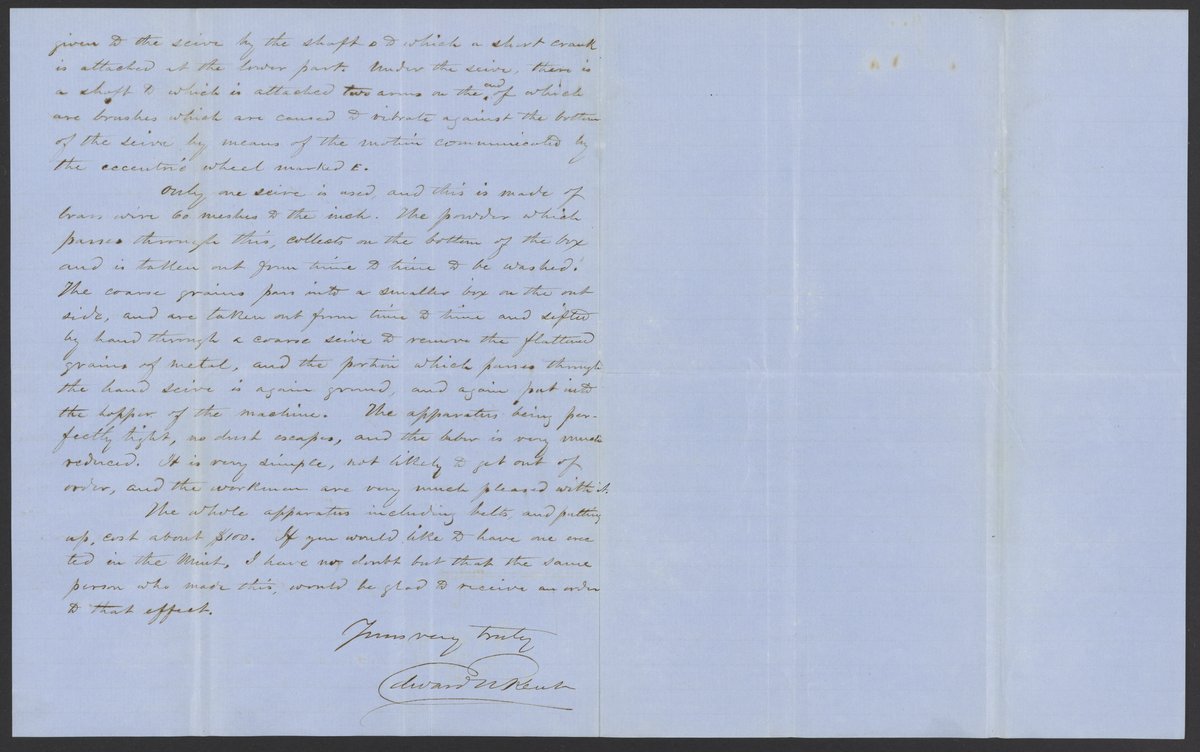 given to the seive by the shaft D to which a short crank
is attached at the lower part. Under the seive, there is
a shaft to which is attached two arms on the end of which
are brushes which are caused to vibrate against the bottom
of the seive by means of the motion communicated by
the eccentric wheel marked E.
Only one seive is used and this is made of
brass wire 60 meshes to the inch. The powder which
passes through this, collects on the bottom of the box
and is taken out from time to time to be washed.
The coarse grains pass into a smaller box on the out
side, and are taken out from time to time and sifted
by hand through a coarse seive to remove the flattened
grains of metal, and the portion which passes through
the hand seive is again ground, and again put into
the hopper of the machine. The apparatus being per-
fectly tight, no dust escapes, and the labor is very much
reduced. It is very simple, not likely to get out of
order, and the workmen are very much pleased with it.
The whole apparatus including belts, and putting
up, cost about $100. If you would like to have one erec
ted in the Mint, I have no doubt but that the same
person who made this, would be glad to receive an order
to that effect.
Yours very truly
Edward N Kent